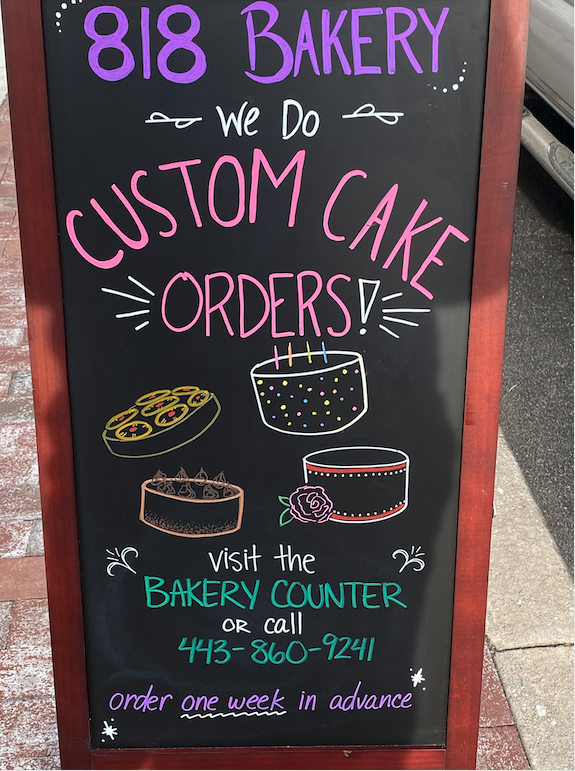 818 BAKERY
We Do
CUSTOM CAKE
ORDERS!
visit the
BAKERY COUNTER
or call
443-860-9241
order one week in advance